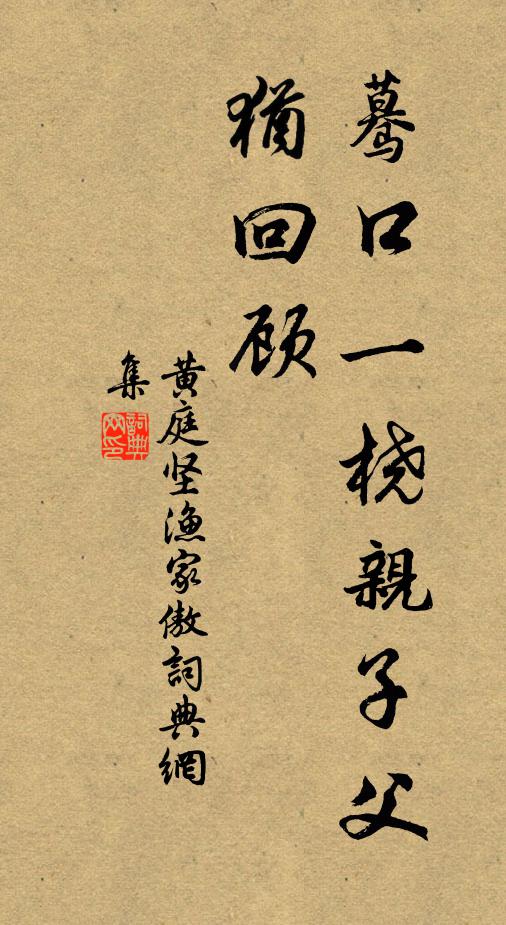 蓦口一桡親子父
猶回顾
黄庭坚渔家傲詞典網
集
詞典
网印